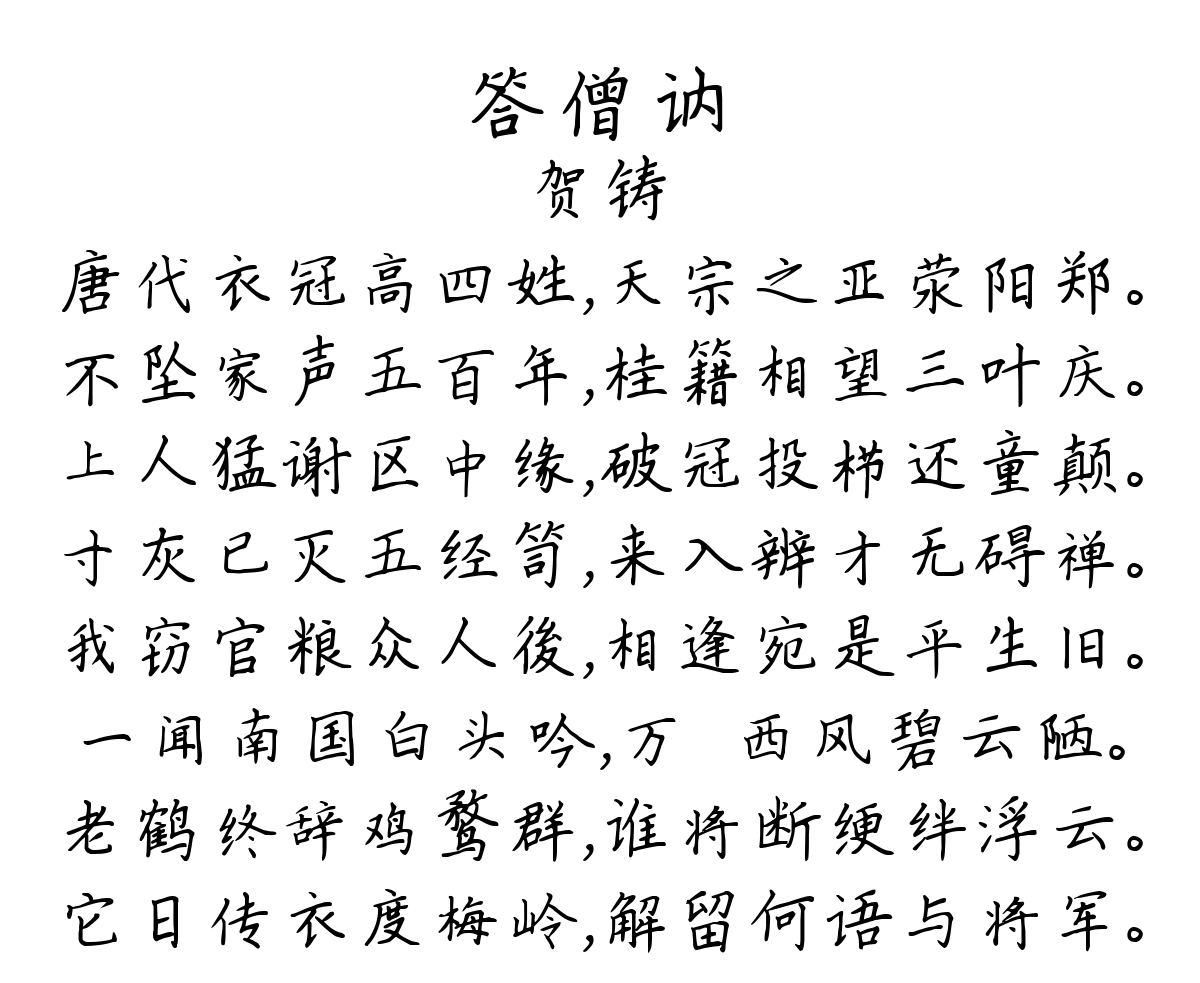 答僧讷
贺铸
唐代衣冠高四姓,天宗之亚荥阳郑。
不坠家声五百年,桂籍相望三叶庆。
上人猛谢区中缘,破冠投栉还童颠。
寸灰已灭五经笥,来入辨才无碍禅。
我窃官粮众人後,相逢宛是平生旧。
一闻南国白头吟,万 西风碧云陋。
老鹤终辞鸡鹜群,谁将断绠绊浮云。
它日传衣度梅岭,解留何语与将军。